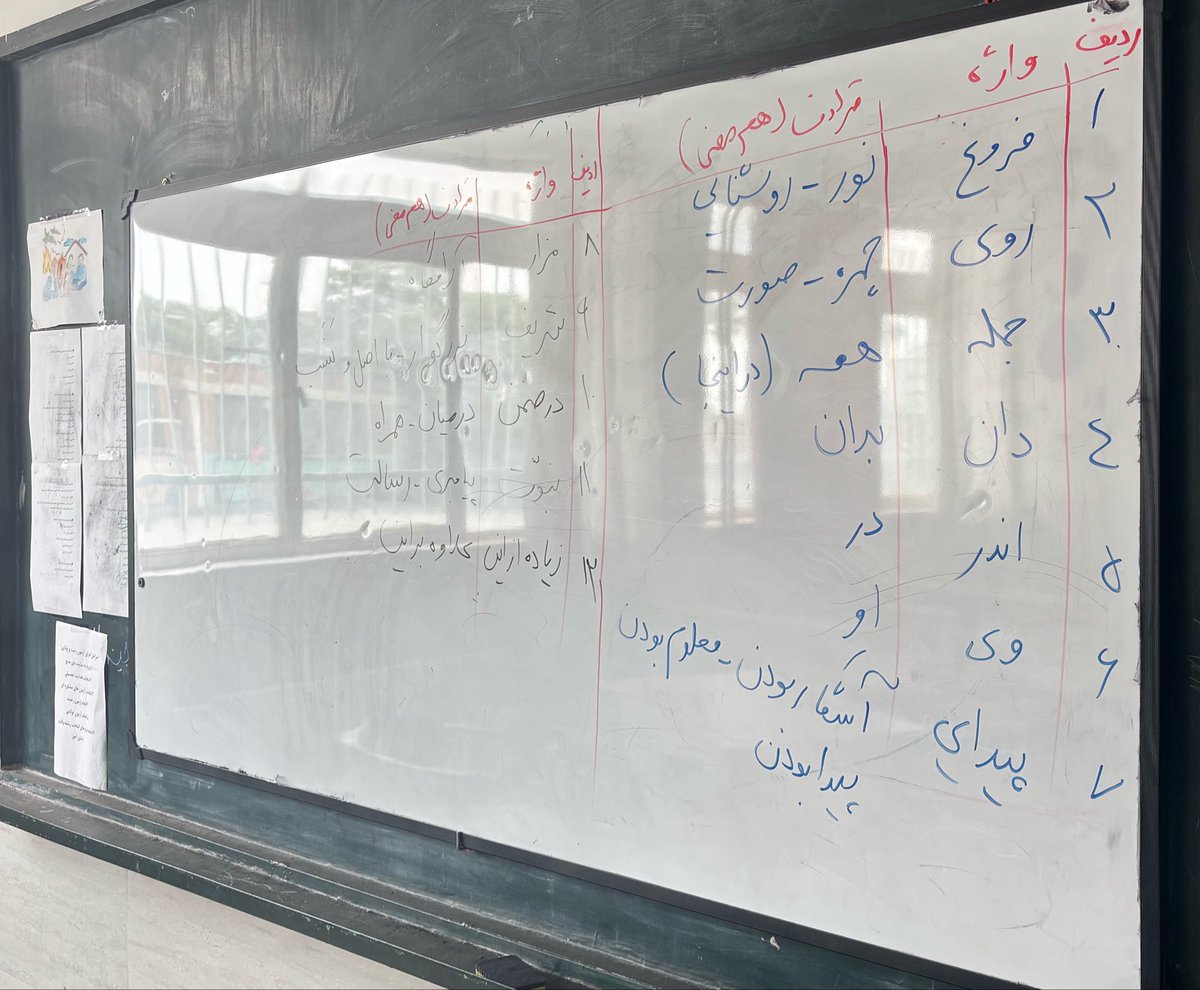 ردیف واژه مترادف (هم معنی)
۱ فروغ نور - روشنایی
۲ روی چهره - صورت
۳ جمله همه (در اینجا)
٤ دان بدان
۵ اندر در
۶ وی او
۷ پیدایی آشکار بودن - معلوم بودن
پیدا بودن
ردیف واژه مترادف (هم معنی)
۸ مزار آرامگاه
۹ شریف بزرگوار - با اصل و نسب
۱۰ در ضمن در میان - همراه
۱۱ نبوّت پیامبری - رسالت
۱۲ زیاده از این علاوه بر این